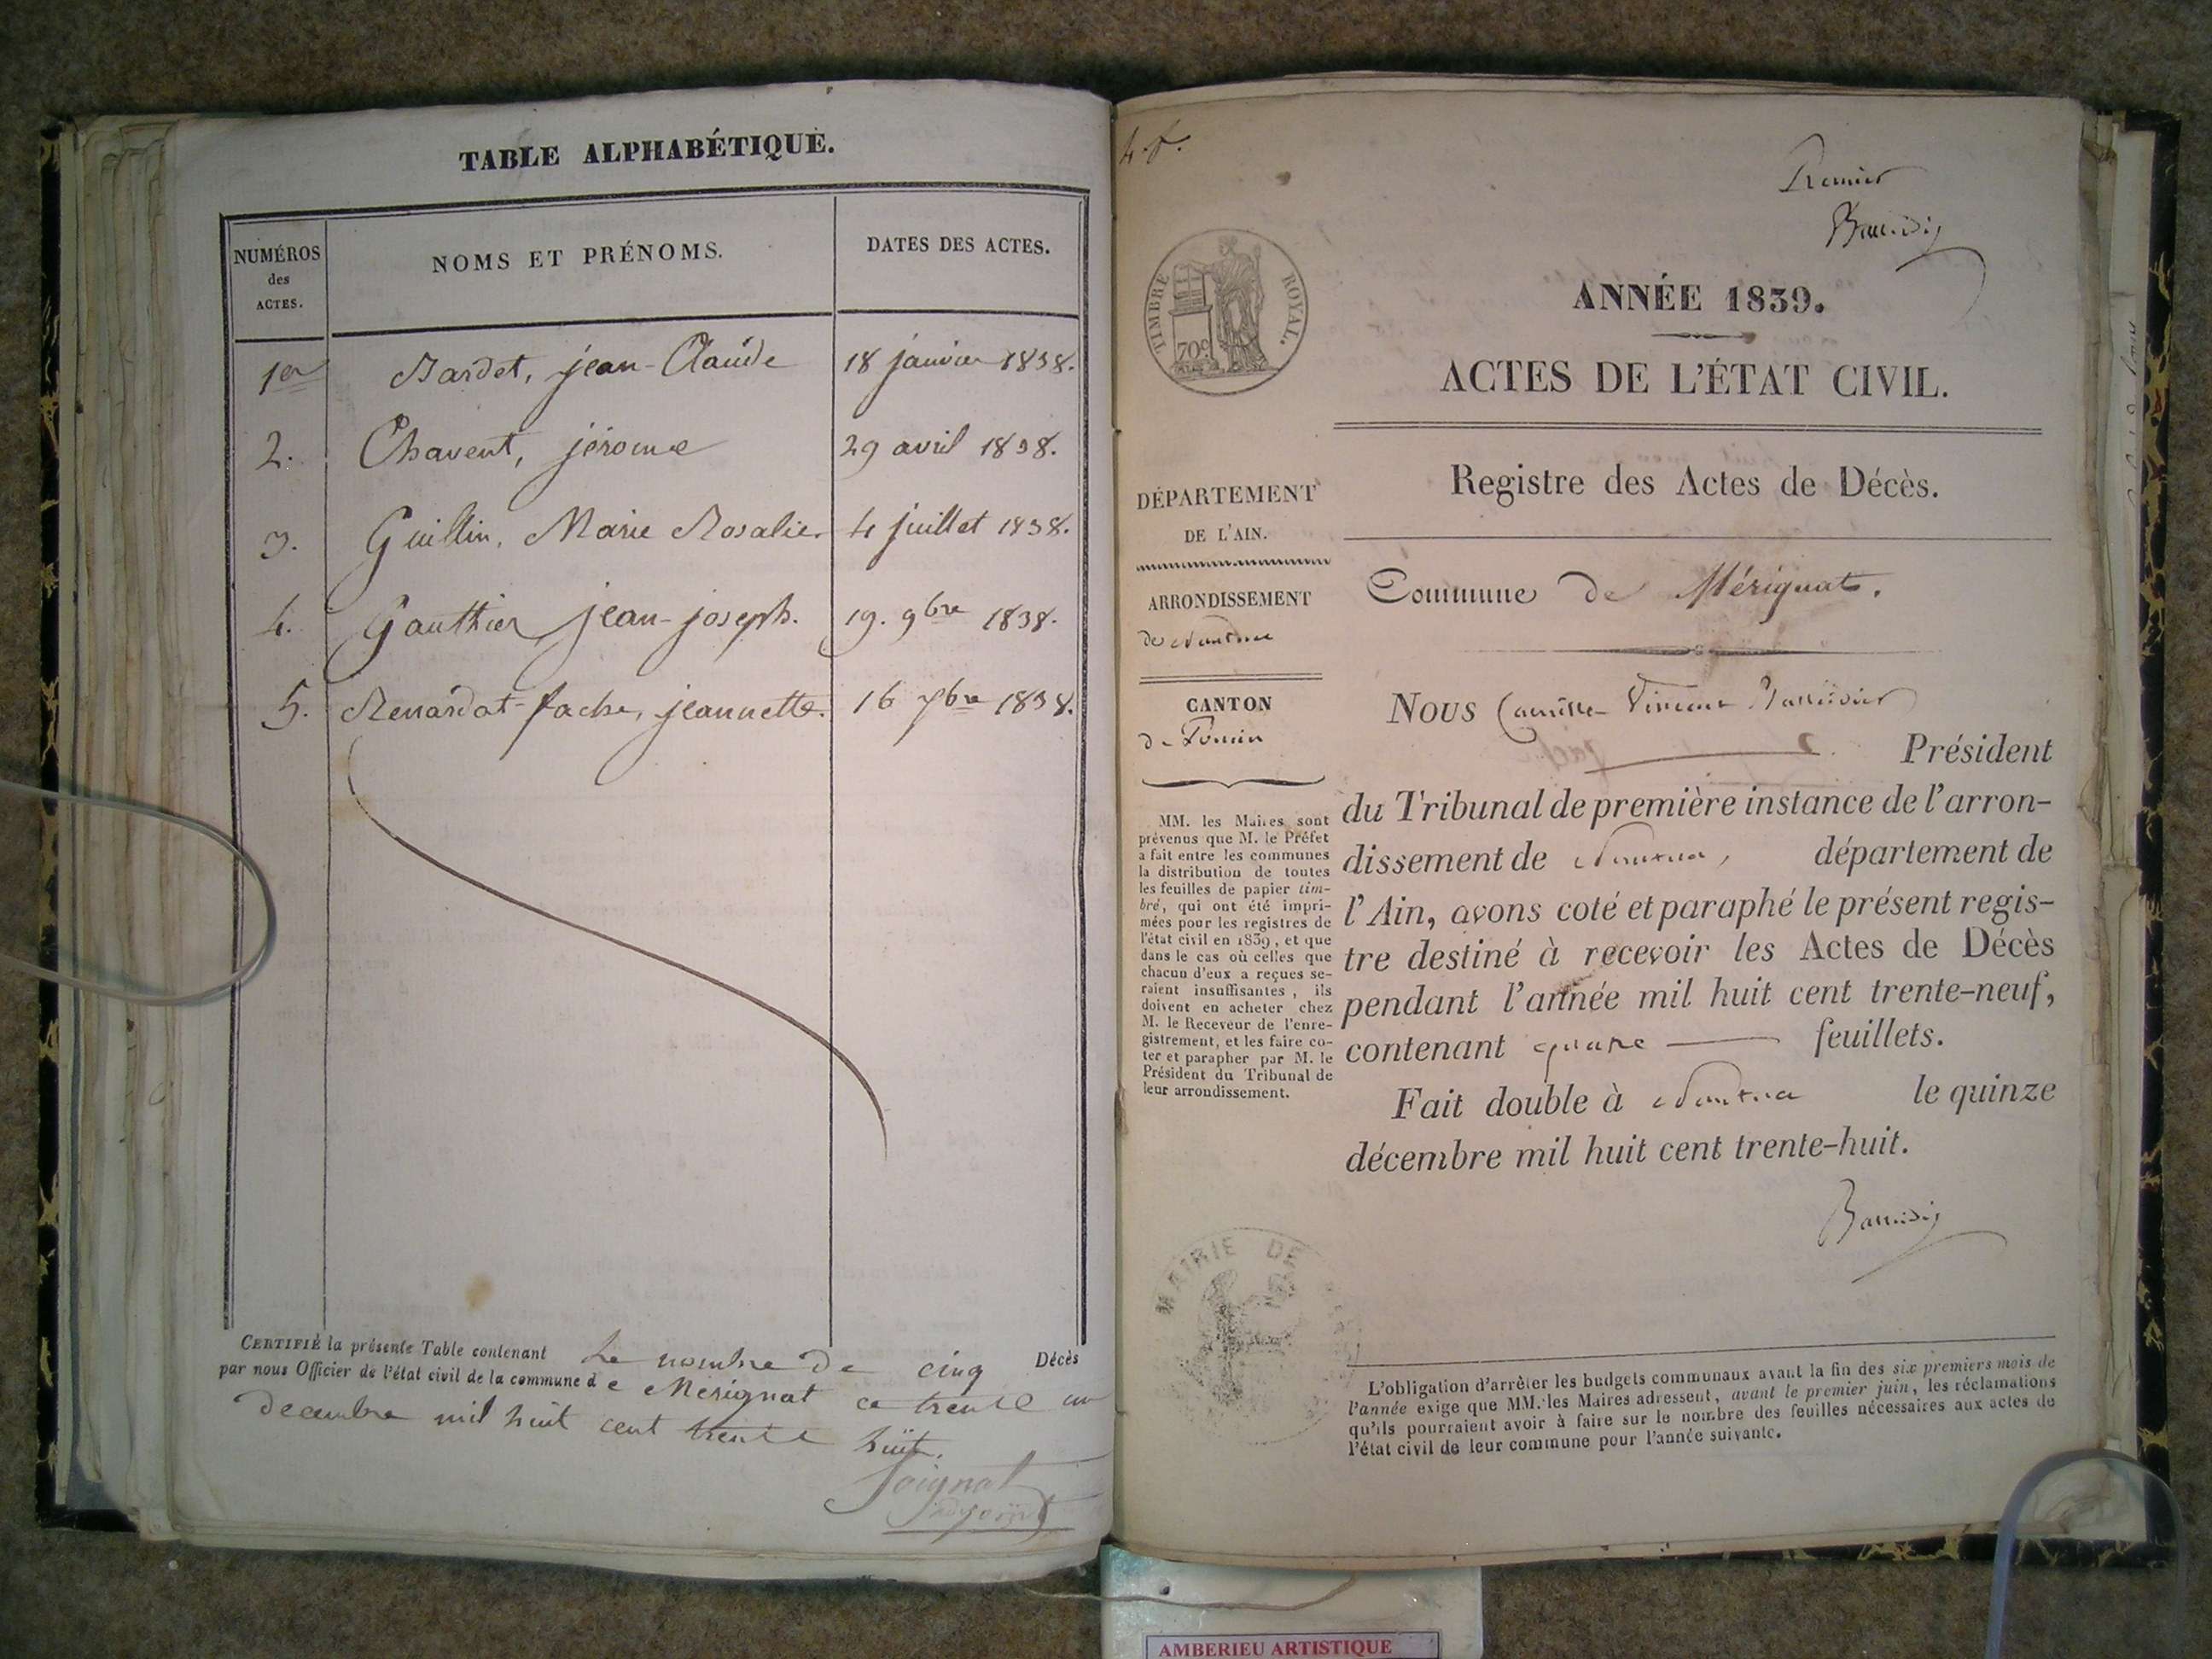 TABLE ALPHABÉTIQUE.
NUMÉROS des ACTES.
NOMS ET PRÉNOMS.
DATES DES ACTES.
1er Bardet, jean-Claude 18 janvier 1838.
2. Chavent, jérome 29 avril 1838.
3. Guillin, Marie Rosalie. 4 juillet 1838.
4. Gauthier jean-joseph. 19. 9bre 1838.
5. Renardat-fache, jeannette. 16 Xbre 1838.
CERTIFIÉ la présente Table contenant le nombre de cinq Décès
par nous Officier de l'état civil de la commune de Mérignat ce trente un
decembre mil huit cent trente huit.
Premier
TIMBRE ROYAL.
70c
ANNÉE 1839.
ACTES DE L'ÉTAT CIVIL.
Registre des Actes de Décès.
Commune de Mérignat.
DÉPARTEMENT
DE L'AIN.
ARRONDISSEMENT
de Nantua
CANTON
de Poncin
MM. les Maires sont
prévenus que M. le Préfet
a fait entre les communes
la distribution de toutes
les feuilles de papier tim-
bré, qui ont été impri-
mées pour les registres de
l'état civil en 1839, et que
dans le cas où celles que
chacun d'eux a reçues se-
raient insuffisantes, ils
doivent en acheter chez
M. le Receveur de l'enre-
gistrement, et les faire co-
ter et parapher par M. le
Président du Tribunal de
leur arrondissement.
Nous Camille Vincent
Président
du Tribunal de première instance de l'arron-
dissement de Nantua, département de
l'Ain, avons coté et paraphé le présent regis-
tre destiné à recevoir les Actes de Décès
pendant l'année mil huit cent trente-neuf,
contenant quatre feuillets.
Fait double à Nantua le quinze
décembre mil huit cent trente-huit.
MAIRIE DE
L'obligation d'arrêter les budgets communaux avant la fin des six premiers mois de
l'année exige que MM. les Maires adressent, avant le premier juin, les réclamations
qu'ils pourraient avoir à faire sur le nombre des feuilles nécessaires aux actes de
l'état civil de leur commune pour l'année suivante.
AMBERIEU ARTISTIQUE